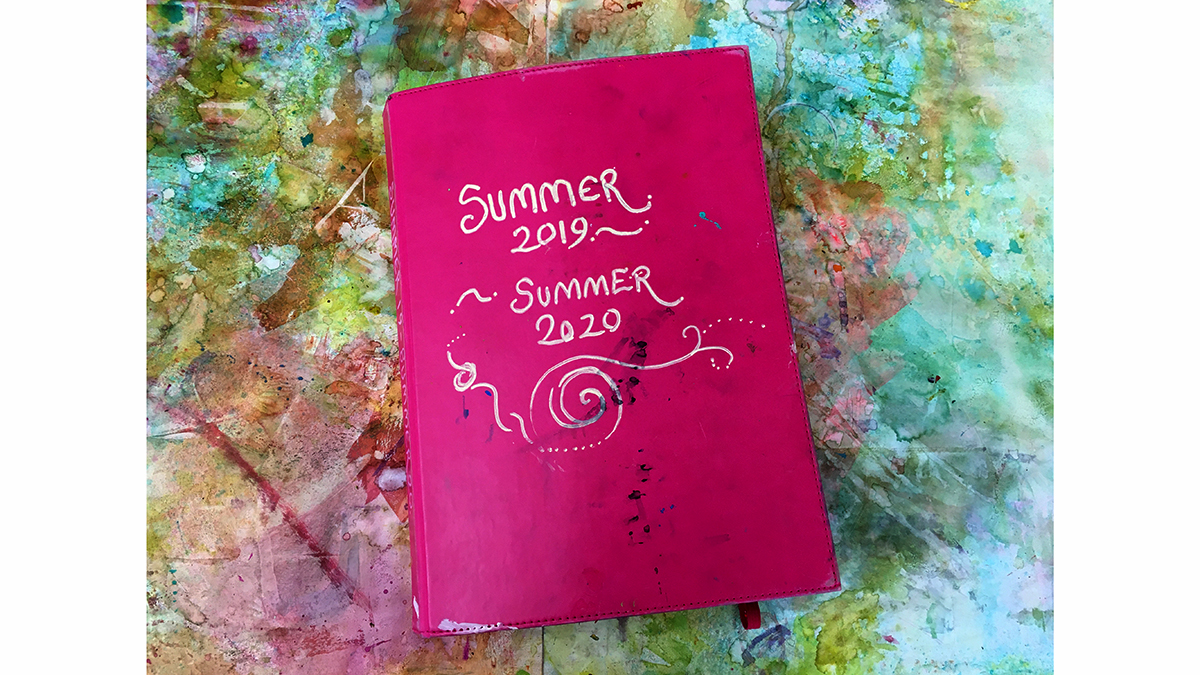 SUMMER
2019.~
~ SUMMER
2020